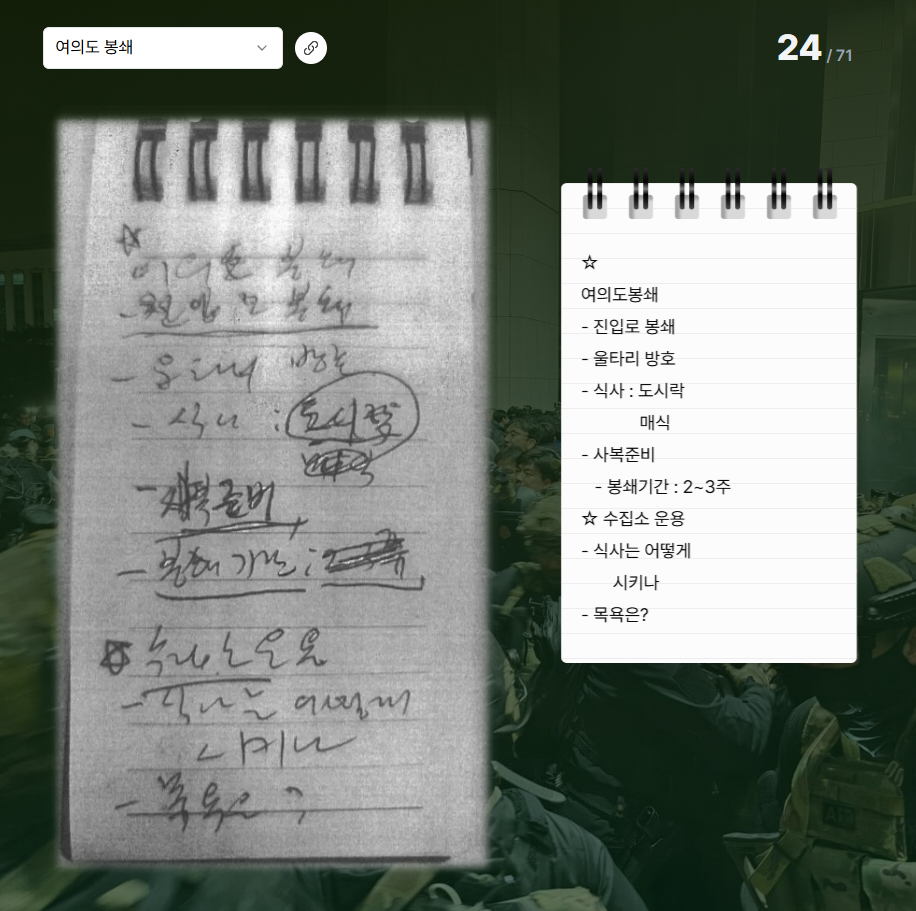 여의도 봉쇄
24 / 71
☆
여의도 봉쇄
- 진입로 봉쇄
- 울타리 방호
- 식사 : 도시락
매식
- 사복준비
- 봉쇄기간 :
☆ 수집소 운용
- 식사는 어떻게
시키나
- 목욕은?
☆
여의도봉쇄
- 진입로 봉쇄
- 울타리 방호
- 식사 : 도시락
매식
- 사복준비
- 봉쇄기간 : 2~3주
☆ 수집소 운용
- 식사는 어떻게
시키나
- 목욕은?